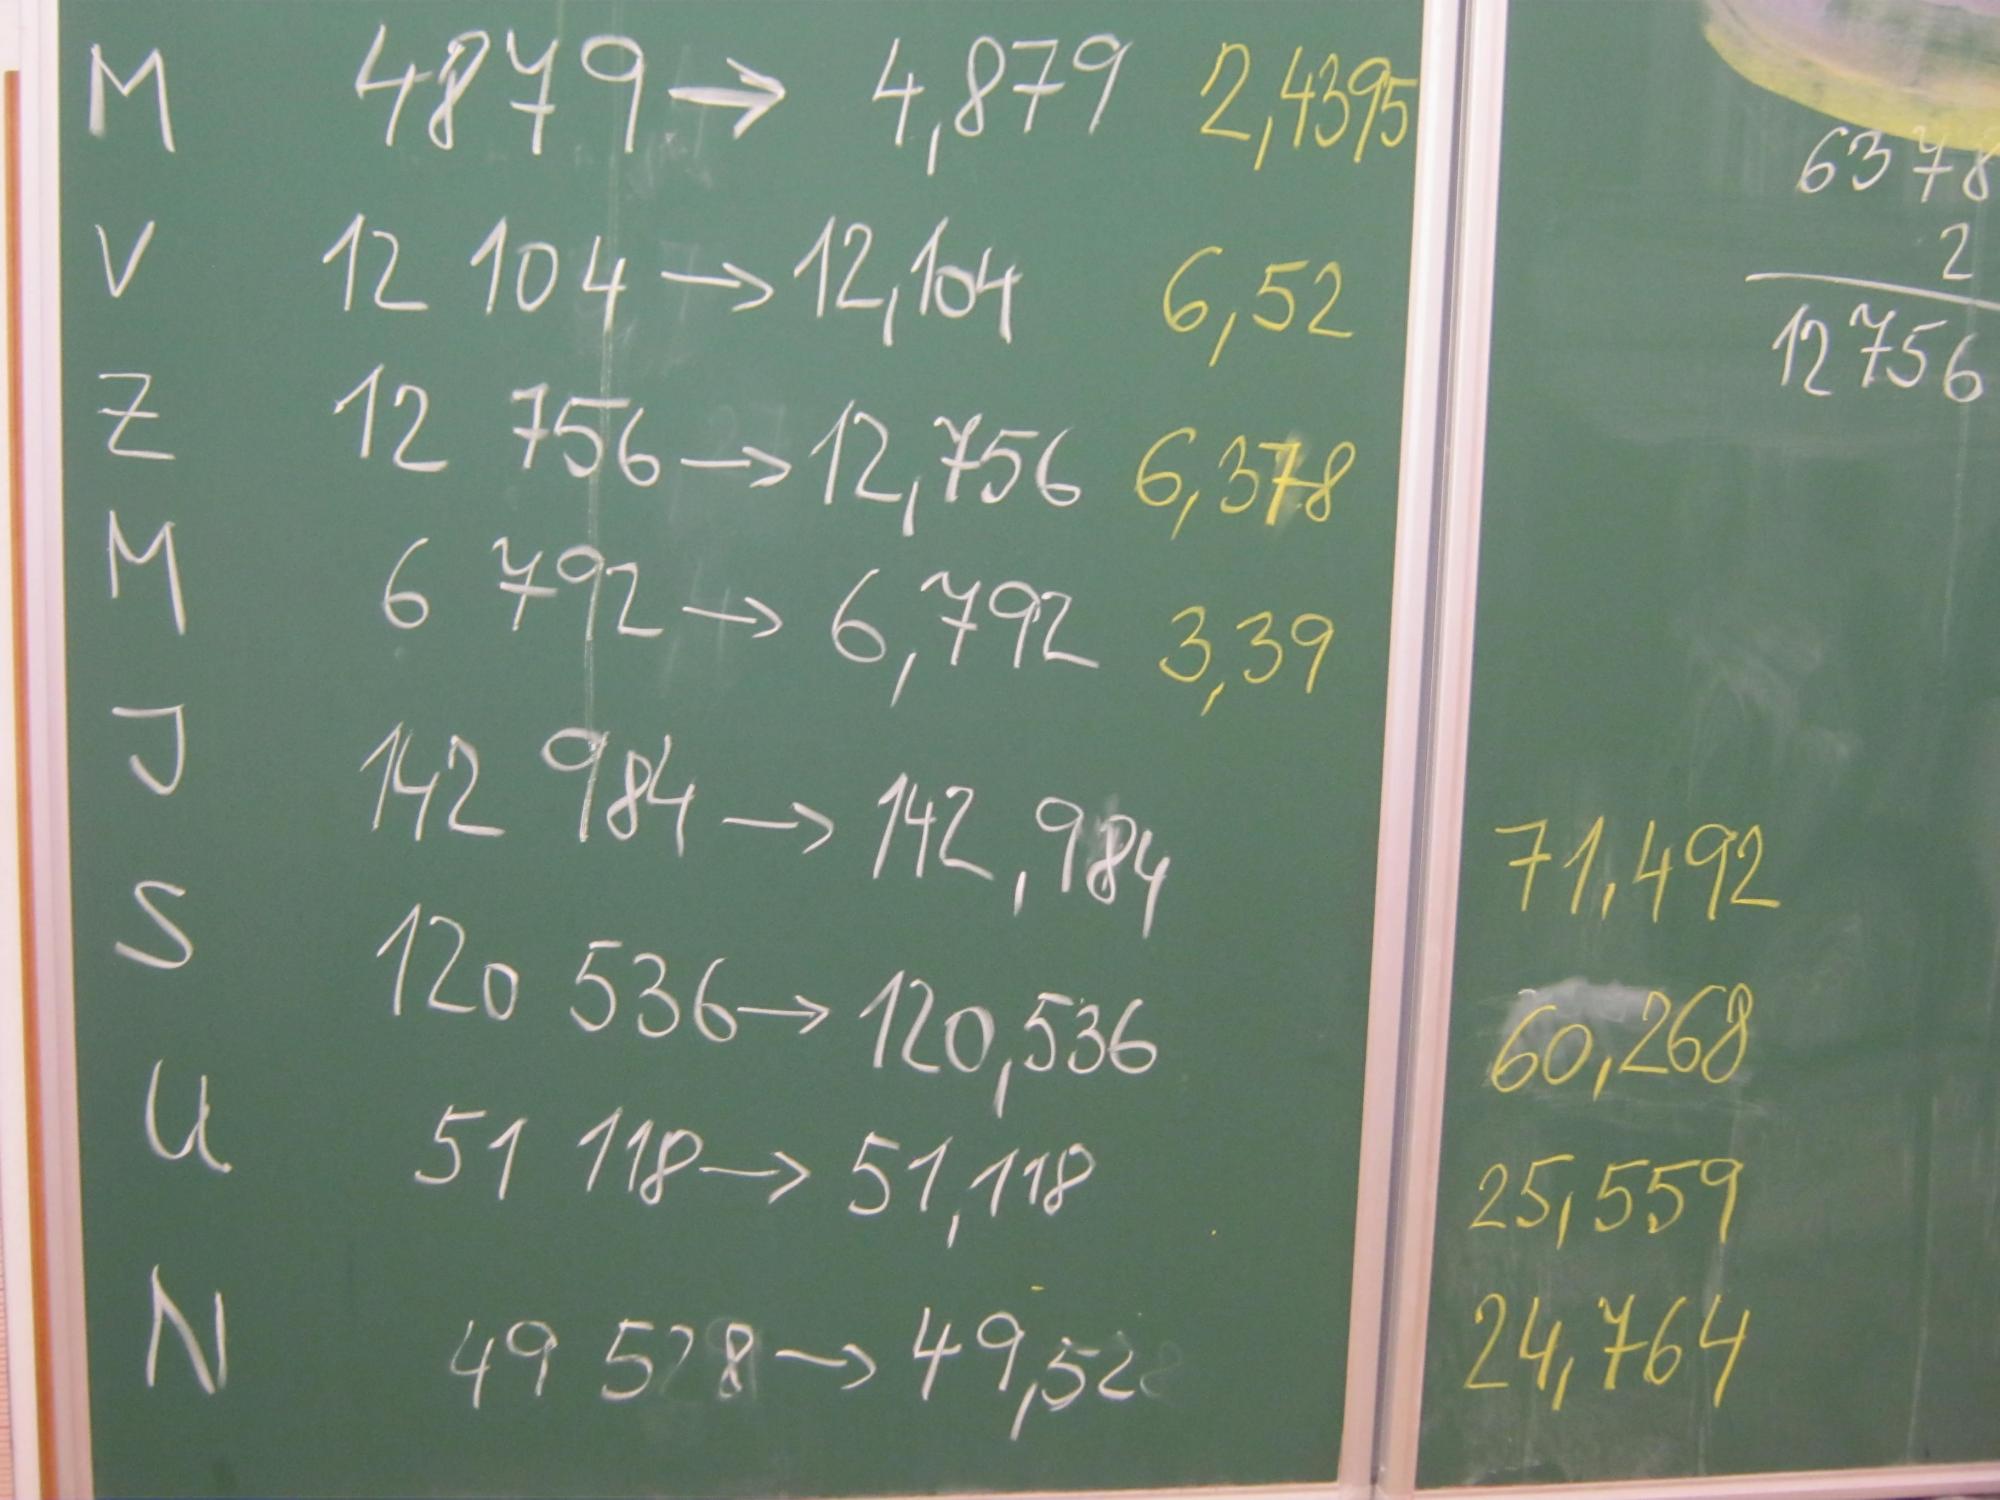 M 4879 → 4,879 2,4395
V 12 104 → 12,104 6,52
Z 12 756 → 12,756 6,378
M 6 792 → 6,792 3,39
J 142 984 → 142,984 71,492
S 120 536 → 120,536 60,268
U 51 118 → 51,118 25,559
N 49 528 → 49,528 24,764
6378
2
12756